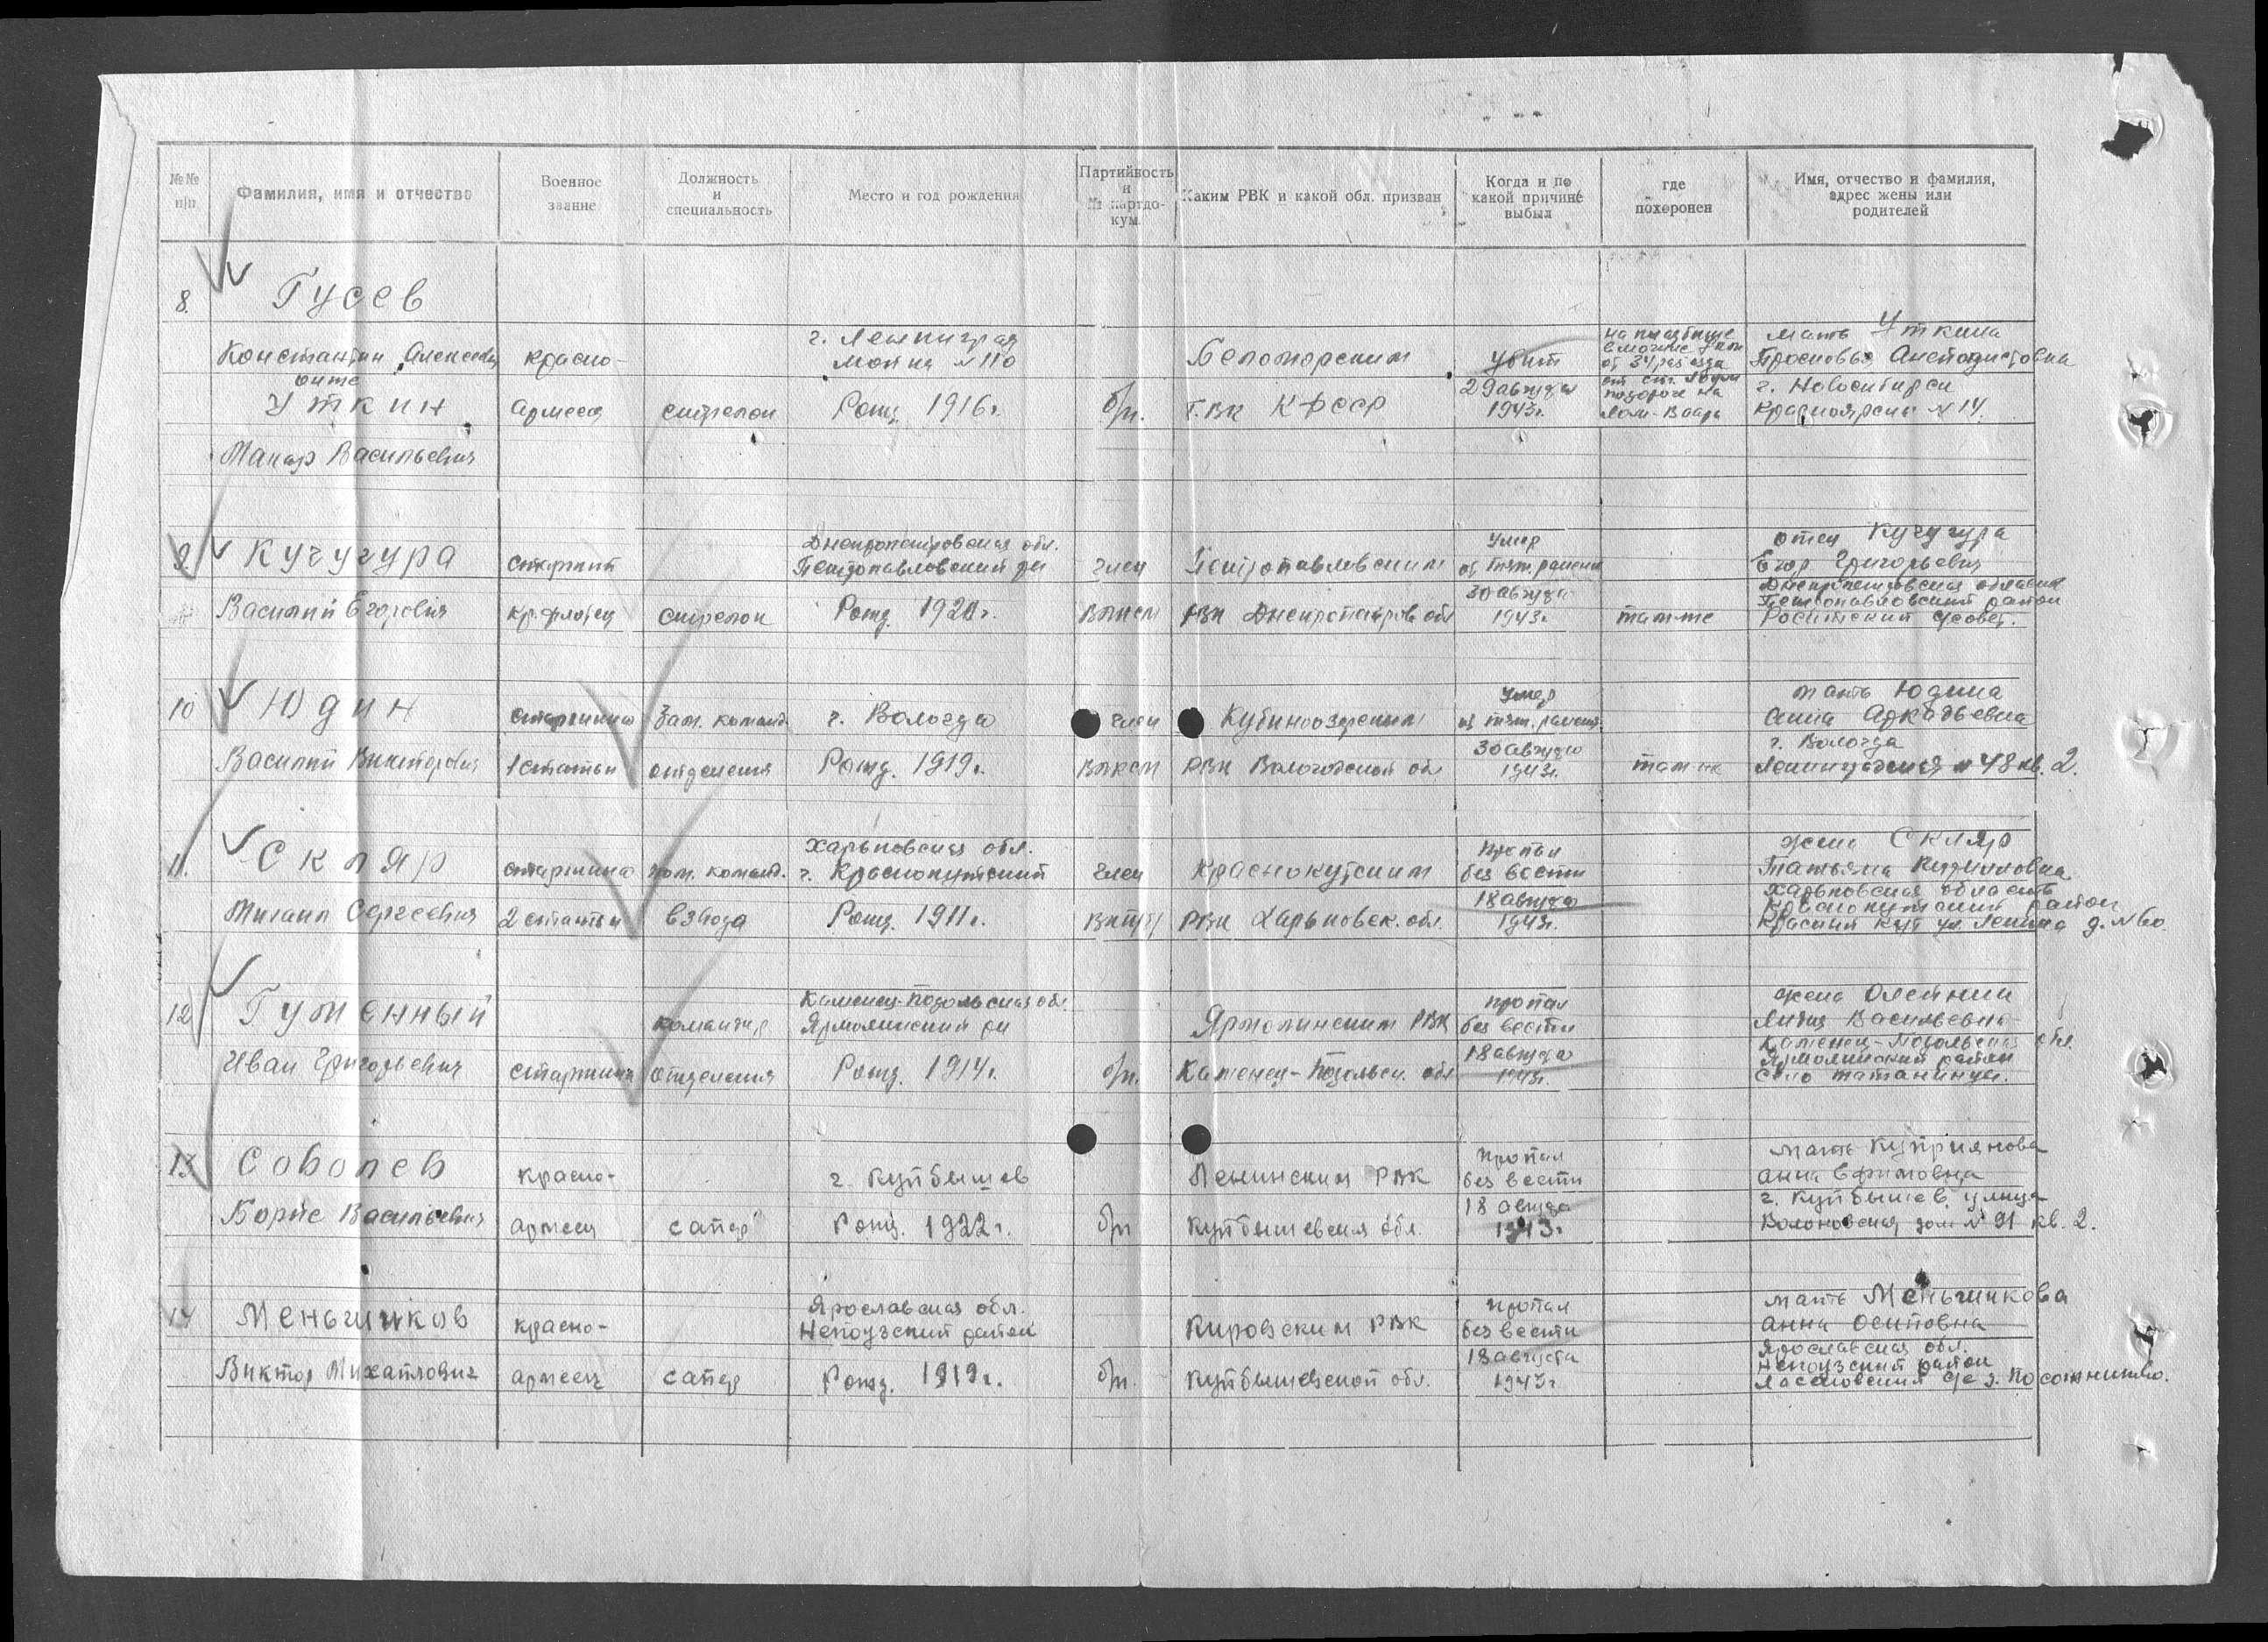 №№ п/п
Фамилия, имя и отчество
Военное звание
Должность и специальность
Место и год рождения
Партийность и № партдокум.
Каким РВК и какой обл. призван
Когда и по какой причине выбыл
где похоронен
Имя, отчество и фамилия, адрес жены или родителей
8. Гусев
Константин Алексеевич
он же
Уткин
Макар Васильевич
красно-
армеец
стрелок
г. Ленинград
Мойка №110
Рожд. 1916г.
б/п.
Беломорским
Г.ВК КФССР
убит
29 августа
1943г.
на кладбище
от 34 разъезда
по дороге на
Лом-Ваара
мать Уткина
Просковья
г. Новосибирск
Красноярская №14.
9. Кучугура
Василий Егорович
старший
кр.флотец
стрелок
Днепропетровская обл.
Петропавловский р-н
Рожд. 1920г.
член
ВЛКСМ
Петропавловским
РВК Днепропетров. обл
Умер
от тяж. ранения
30 августа
1943г.
там же
отец Кучугура
Егор Григорьевич
Днепропетровская область
Петропавловский район
с/совет.
10 Юдин
Василий Викторович
старшина
1 статьи
Зам. команд.
отделения
г. Вологда
Рожд. 1919г.
член
ВЛКСМ
Кубиноозерским
РВК Вологодской обл
Умер
от тяж. ранения
30 августа
1943г.
там же
мать Юдина
Анна Аркадьевна
г. Вологда
Ленинградская №48 кв. 2.
11. Скляр
Михаил Сергеевич
старшина
2 статьи
пом. команд.
взвода
Харьковская обл.
г. Краснокутский
Рожд. 1911г.
член
ВКП/б/
Краснокутским
РВК Харьковск. обл.
пропал
без вести
18 августа
1943г.
жена Скляр
Татьяна Кирилловна
Харьковская область
Краснокутский район
Красный Кут ул. Ленина д. №60
12 Гуменный
Иван Григорьевич
старшина
командир
отделения
Каменец-Подольская обл.
Ярмолинский р-н
Рожд. 1914г.
б/п.
Ярмолинским РВК
Каменец-Подольск. обл
пропал
без вести
18 августа
1943г.
жена Олейник
Лидия Васильевна
Каменец-Подольская обл.
Ярмолинский район
село Татаринцы.
13 Соболев
Борис Васильевич
красно-
армеец
сапер
г. Куйбышев
Рожд. 1922г.
б/п
Ленинским РВК
Куйбышевская обл.
пропал
без вести
18 августа
1943г.
мать Куприянова
Анна Ефимовна
г. Куйбышев улица
дом №91 кв. 2.
14 Меньшиков
Виктор Михайлович
красно-
армеец
сапер
Ярославская обл.
Некоузский район
Рожд. 1919г.
б/п.
Кировским РВК
Куйбышевской обл.
пропал
без вести
18 августа
1943г
мать Меньшикова
Анна Осиповна
Ярославская обл.
Некоузский район
с/с д.